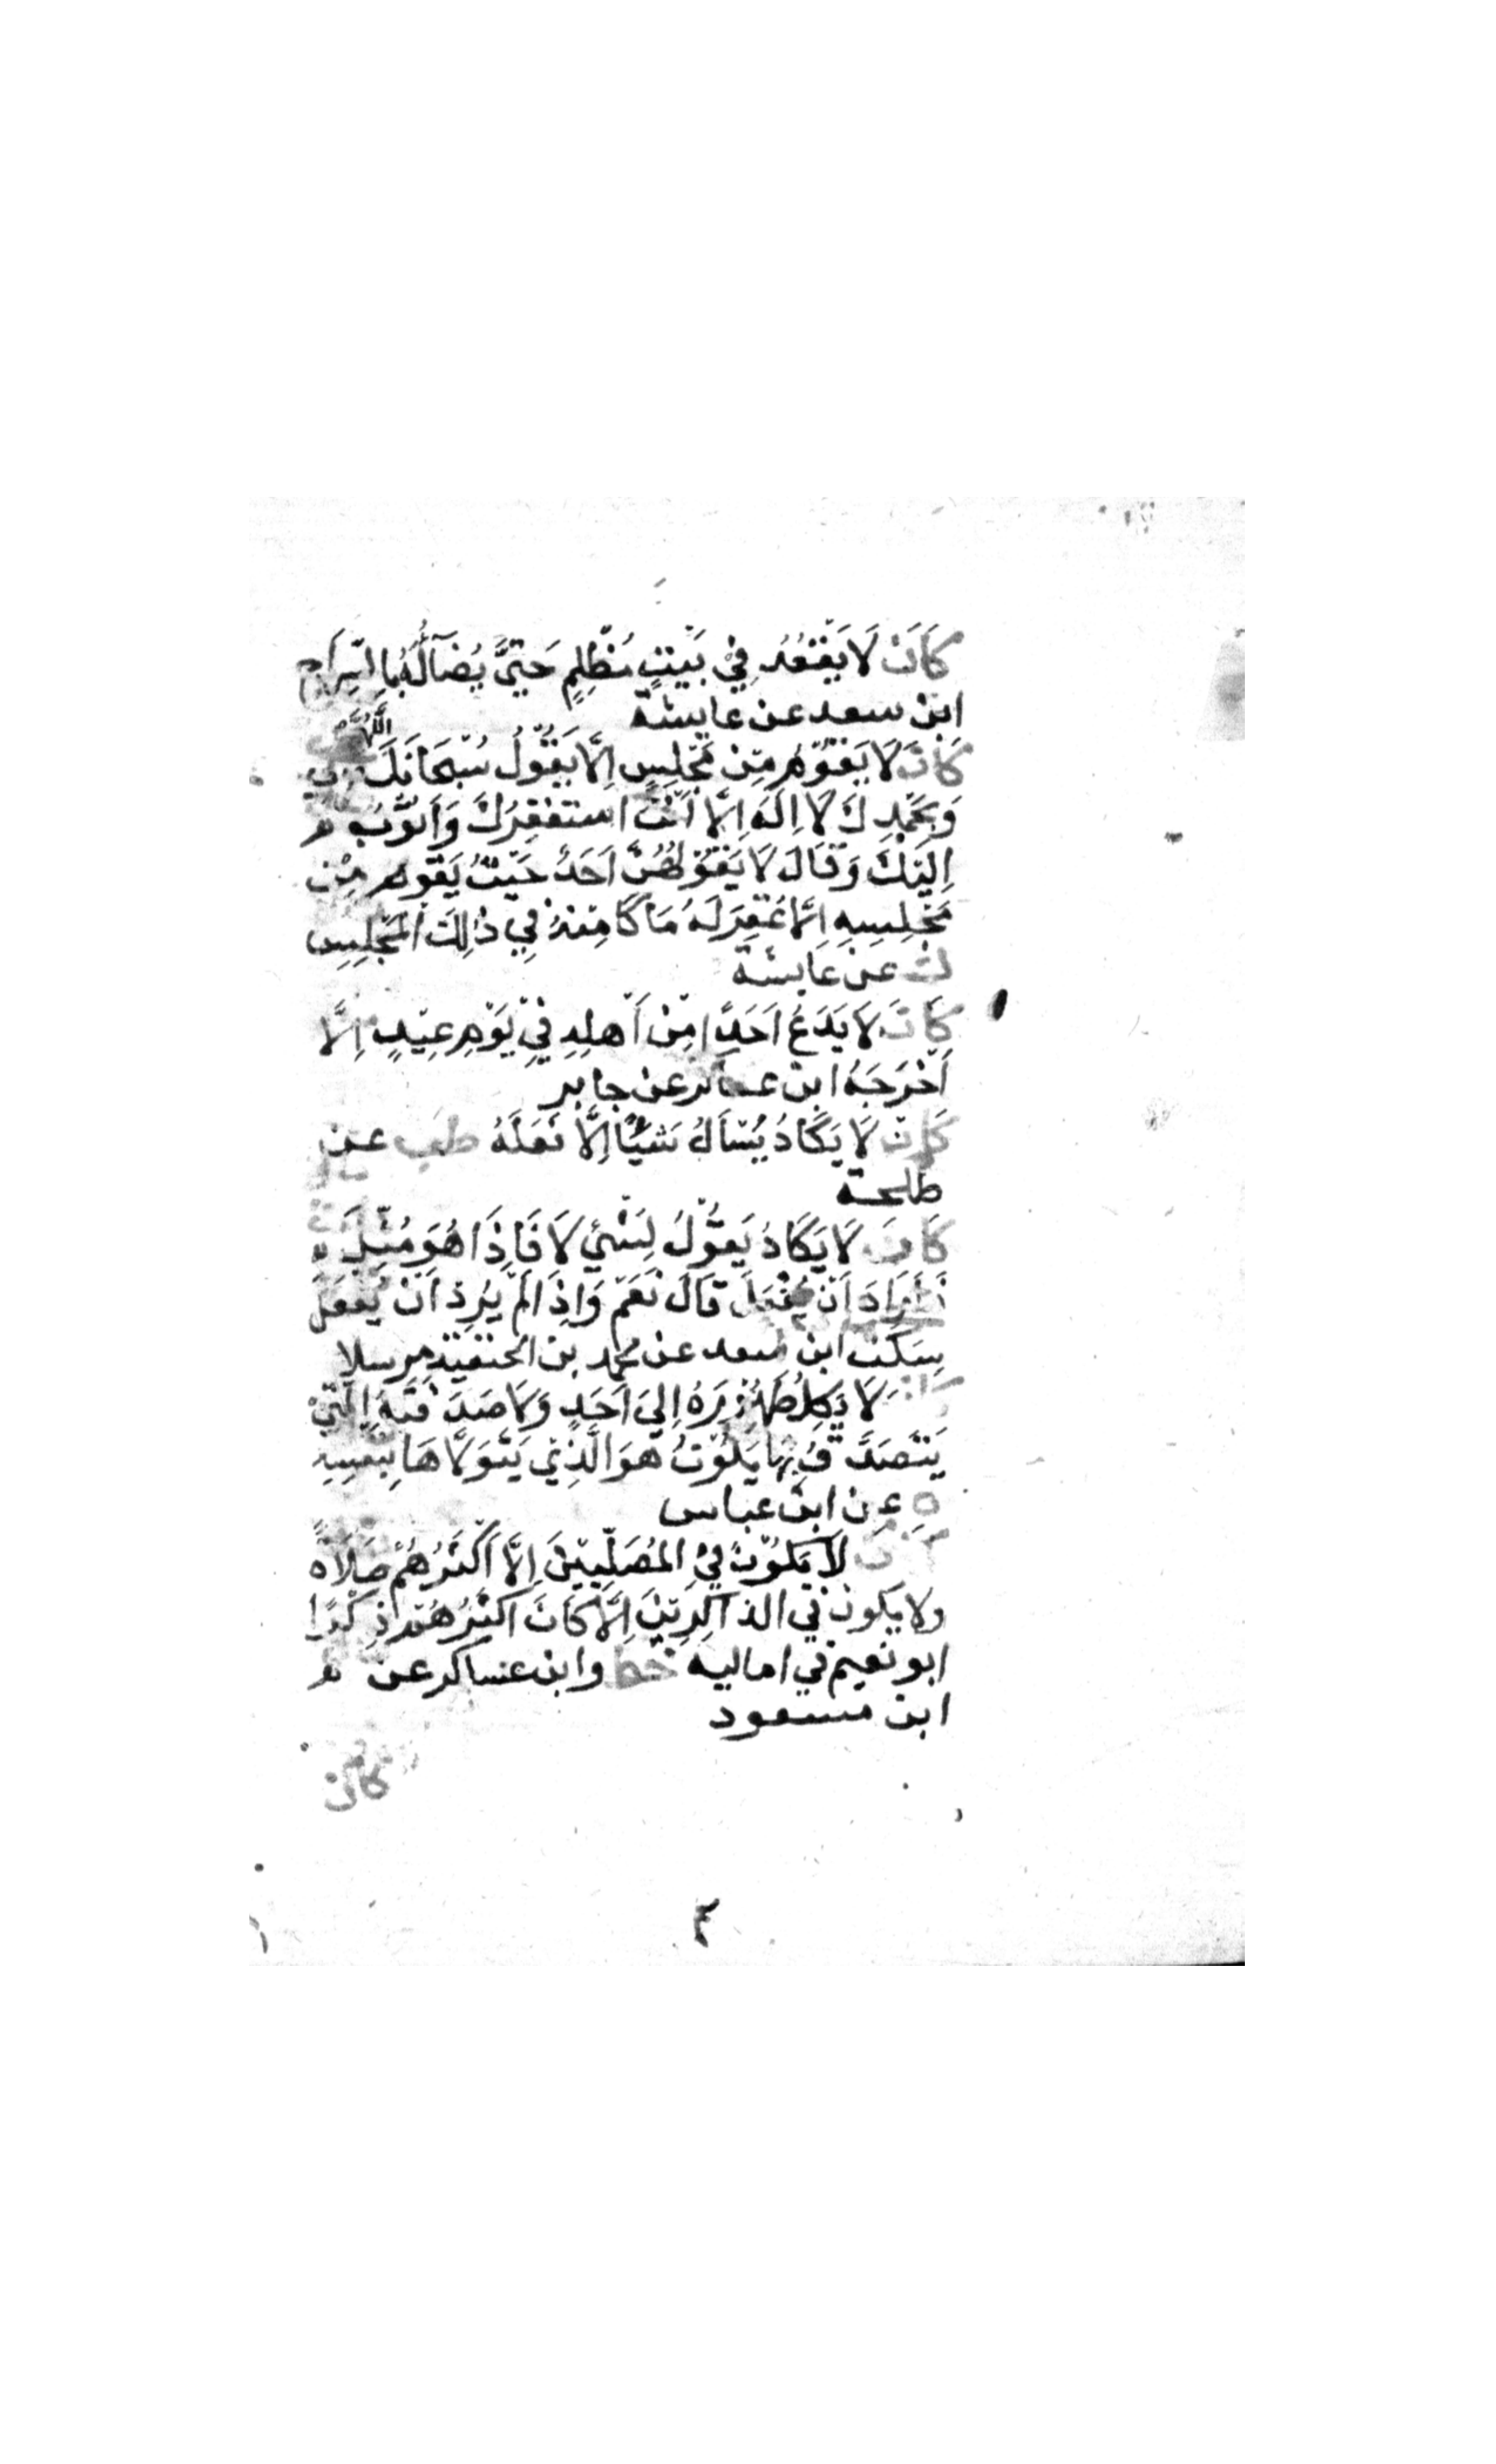 كَانَ لَا يَقْعُدُ فِي بَيْتٍ مُظْلِمٍ حَتَّى يُضَآءَ لَهُ بِالسِّرَاجِ
ابن سعد عن عايشة
كَانَ لَا يَقُوْمُ مِنْ مَجْلِسٍ اِلَّا يَقُوْلُ سُبْحَانَكَ اللّٰهُمَّ
وَبِحَمْدِكَ لَا اِلَهَ اِلَّا اَنْتَ استغفِرُكَ وَاَتُوْبُ
اِلَيْكَ وَقَالَ لَا يَقُوْلُهُنَّ اَحَدٌ حَيْثُ يَقُومُ مِنْ
مَجْلِسِهِ اِلَّا غُفِرَ لَهُ مَا كَا مِنْهُ فِي ذٰلِكَ الْمَجْلِسِ
ك عَنْ عَايشَة
كَانَ لَا يَدَعُ اَحَدًا مِنْ اَهلِهِ فِي يَوْمِ عِيْدٍ اِلَّا
اَخْرَجَهُ ابن عساكر عن جابر
كَانَ لَا يَكَادُ يُسْاَلُ شَيْئًا اِلَّا فَعَلَهُ طب عن
طلحة
كَانَ لَا يَكَادُ يَقُوْلُ لِشَيْئٍ لَا فَاِذَا هُوَ سُئِلَ
فَاَرَادَ اَنْ يَفْعَلَ قَالَ نَعَمْ وَاِذَا لَمْ يُرِدْ اَنْ يَفْعَلَ
سَكَتَ ابن سعد عن محمد بن الحنفية مرسلا
كان لَا يَكِلُ طَهُوْرَهُ اِلَى اَحَدٍ وَلَا صَدَقَتَهُ الَّتِيْ
يَتَصَدَّقُ بِهَا يَكُوْنُ هوَ الَّذِيْ يَتَوَلَّاهَا بِنَفْسِهِ
ه عن ابن عباس
كان لَا يَكُوْنُ فِي المُصَلِّيْنَ اِلَّا اَكْثَرُهُمْ صَلَاةً
ولا يَكُونُ فِي الذاكِرِيْنَ اِلَّا كَانَ اكثَرُهُمْ ذِكْرًا
ابو نعيم في اماليه خط وابن عساكر عن
ابن مسعود
كان